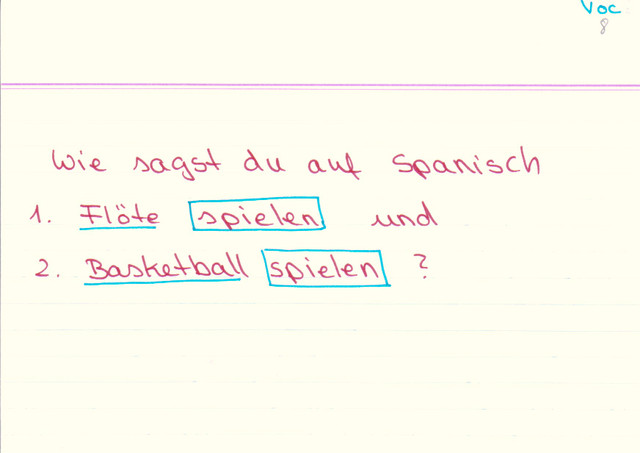 Voc
8
Wie sagst du auf Spanisch
1. Flöte spielen und
2. Basketball spielen ?